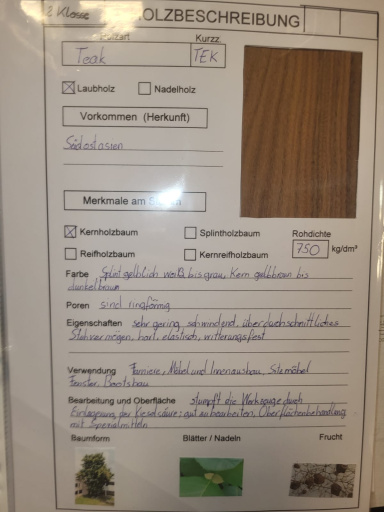 2 Klasse HOLZBESCHREIBUNG
Holzart Kurzz.
Teak TEK
Laubholz Nadelholz
Vorkommen (Herkunft)
Südostasien
Merkmale am
Kernholzbaum Splintholzbaum Rohdichte
Reifholzbaum Kernreifholzbaum 750 kg/dm³
Farbe Splint gelblich weiß bis grau, Kern gelbbraun bis
dunkelbraun
Poren sind ringförmig
Eigenschaften sehr gering schwindend, überduchschnittliches
Stehvermögen, hart, elastisch, witterungsfest
Verwendung Furniere, Möbel und Innenausbau, Sitzmöbel
Fenster, Bootsbau
Bearbeitung und Oberfläche stumpft die Werkzeuge durch
Einlagerung der Kieselsäure; gut zu bearbeiten, Oberflächenbehandlung
mit Spezialmitteln
Baumform Blätter / Nadeln Frucht